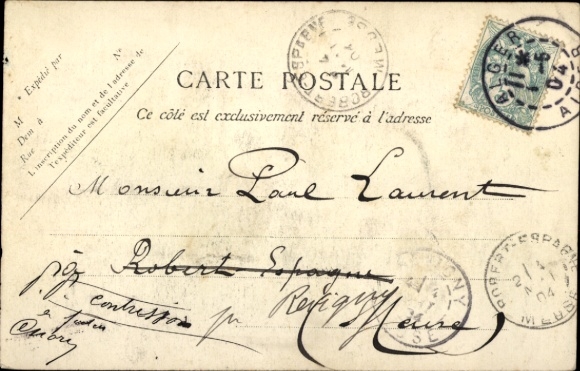 N°
* Expédié par
M
Dem à
Rue
L'inscription du nom et de l'adresse de
l'expéditeur est facultative
CARTE POSTALE
Ce côté est exclusivement réservé à l'adresse
ROBERT-ESPAGNE
MEUSE
ALGER
04
Monsieur Paul Laurent
Robert Espagne
Contrisson
par Revigny
Meuse
ROBERT-ESPAGNE
24
04
MEUSE